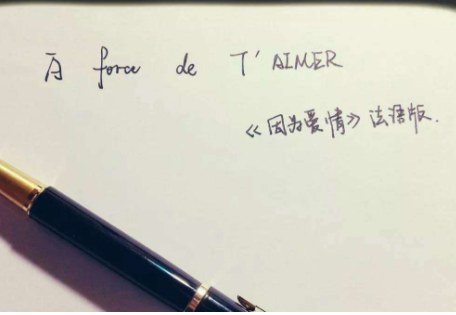 À force de T'AIMER
《因为爱情》法语版.